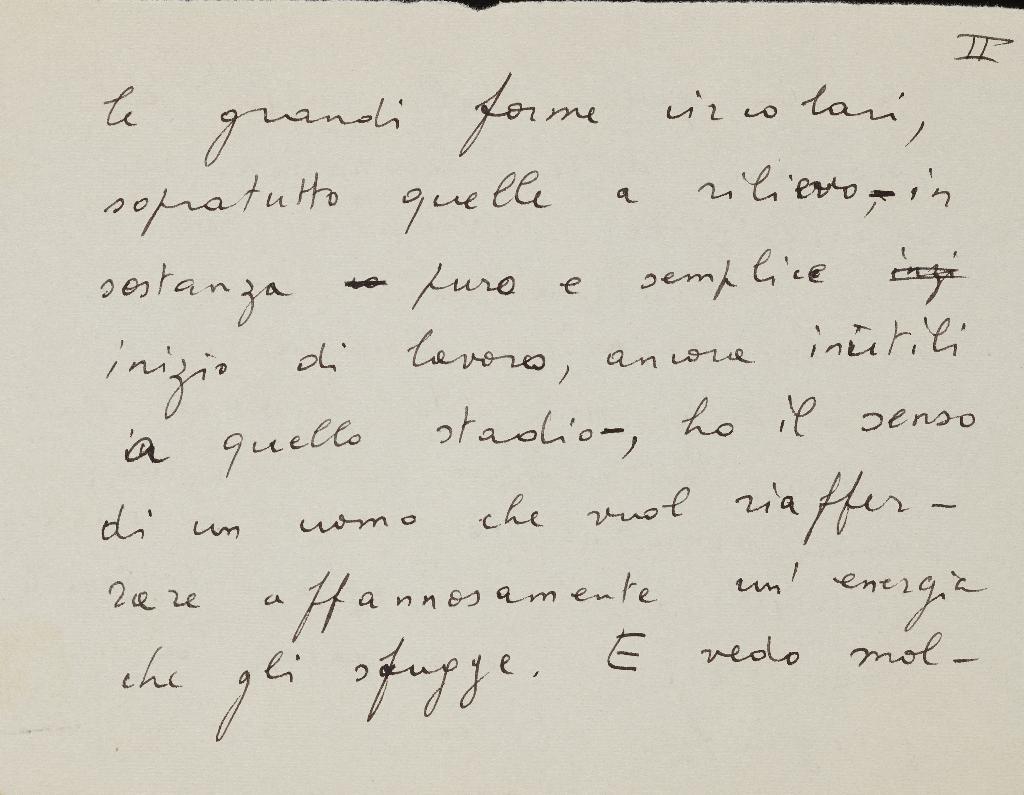 II
le grandi forme circolari,
sopratutto quelle a rilievo, - in
sostanza puro e semplice inizi
inizio di lavoro, ancora inutili
a quello stadio -, ho il senso
di un uomo che vuol riaffer-
rare affannosamente un' energia
che gli sfugge. E vedo mol-